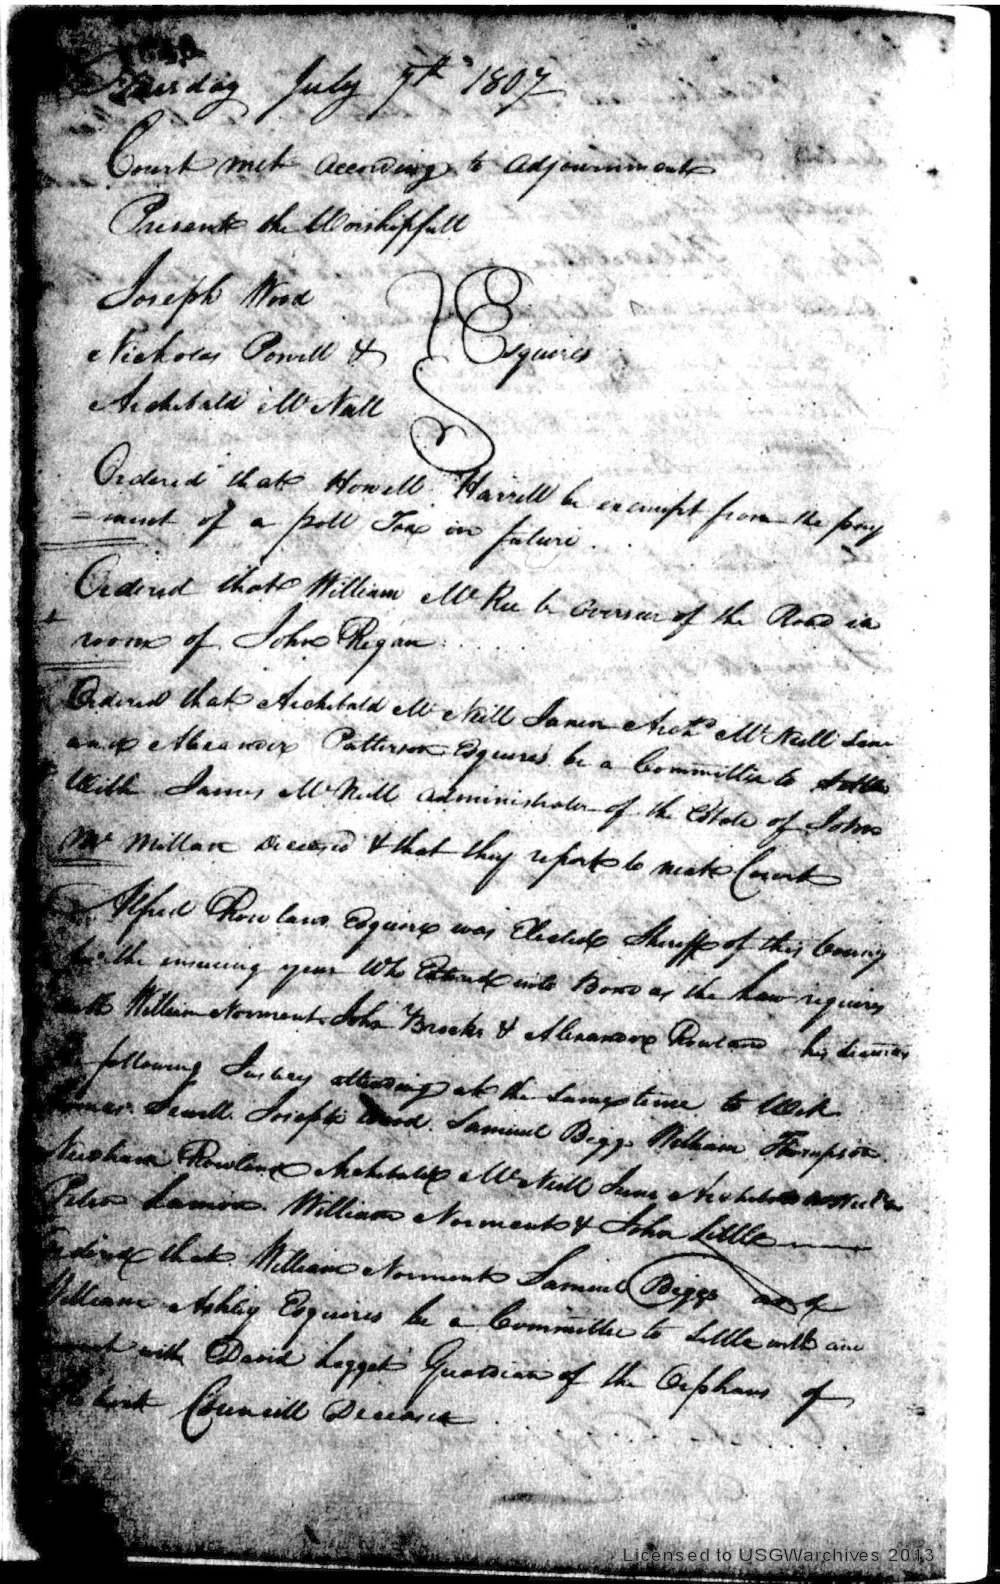 July 7th 1807
Court met according to adjournment
Present the Worshipfull
Joseph Wood
Nicholas Powell & Esquires
Archibald McNeill
Ordered that Howell Harrell be exempt from the pay
=ment of a poll Tax in future
Ordered that William McRee be overseer of the Road in
room of John Regan
Ordered that Archibald McNeill Junior Archd McNeill Senr
and Alexander Patterson Esquires be a Committee to settle
With James McNeill administrator of the Estate of John
McMillan Deceased & that they report to next Court
Alfred Rowland Esquire was Elected Sheriff of this County
for the ensuing year Who Entered into Bond as the Law requires
with William Norment John Brooks & Alexander Rowland his
following attending at the same time to Wit
Sewell Joseph Wood Samuel Biggs William Thompson
Needham Rowland Archibald McNeill Junr
Peter William Norment & John Little
Ordered that William Norment Samuel Biggs and
William Ashley Esquires be a Committee to settle with
with David Legget Guardian of the Orphans of
Councill Deceased
Licensed to USGWarchives 2013